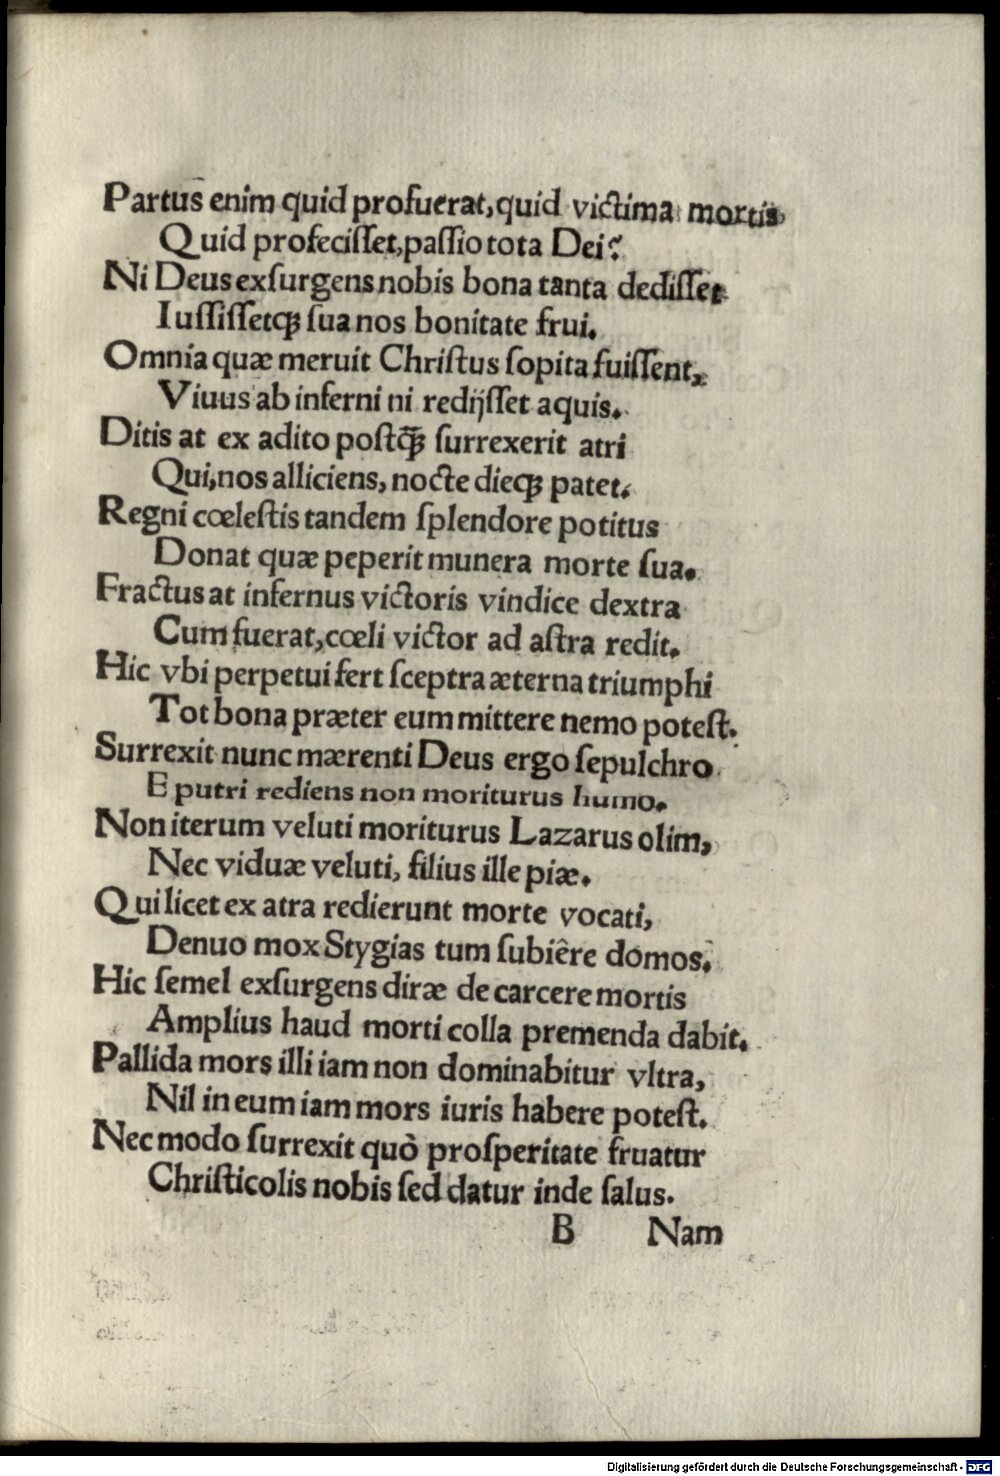 Partus enim quid profuerat, quid victima mortis
Quid profeciſſet, paſſio tota Dei?
Ni Deus exſurgens nobis bona tanta dediſſet
Iuſſiſſetqꝫ ſua nos bonitate frui.
Omnia quæ meruit Chriſtus ſopita fuiſſent,
Viuus ab inferni ni redijſſet aquis.
Ditis at ex adito poſtꝙ̃ ſurrexerit atri
Qui, nos alliciens, nocte dieqꝫ patet.
Regni cœleſtis tandem ſplendore potitus
Donat quæ peperit munera morte ſua.
Fractus at infernus victoris vindice dextra
Cum fuerat, cœli victor ad aſtra redit.
Hic vbi perpetui fert ſceptra æterna triumphi
Tot bona præter eum mittere nemo poteſt.
Surrexit nunc mærenti Deus ergo ſepulchro
E putri rediens non moriturus humo.
Non iterum veluti moriturus Lazarus olim,
Nec viduæ veluti, filius ille piæ.
Qui licet ex atra redierunt morte vocati,
Denuo mox Stygias tum ſubiêre domos.
Hic ſemel exſurgens diræ de carcere mortis
Amplius haud morti colla premenda dabit.
Pallida mors illi iam non dominabitur vltra,
Nil in eum iam mors iuris habere poteſt.
Nec modo ſurrexit quò proſperitate fruatur
Chriſticolis nobis ſed datur inde ſalus.
B Nam
Digitalisierung gefördert durch die Deutsche Forschungsgemeinschaft - DFG